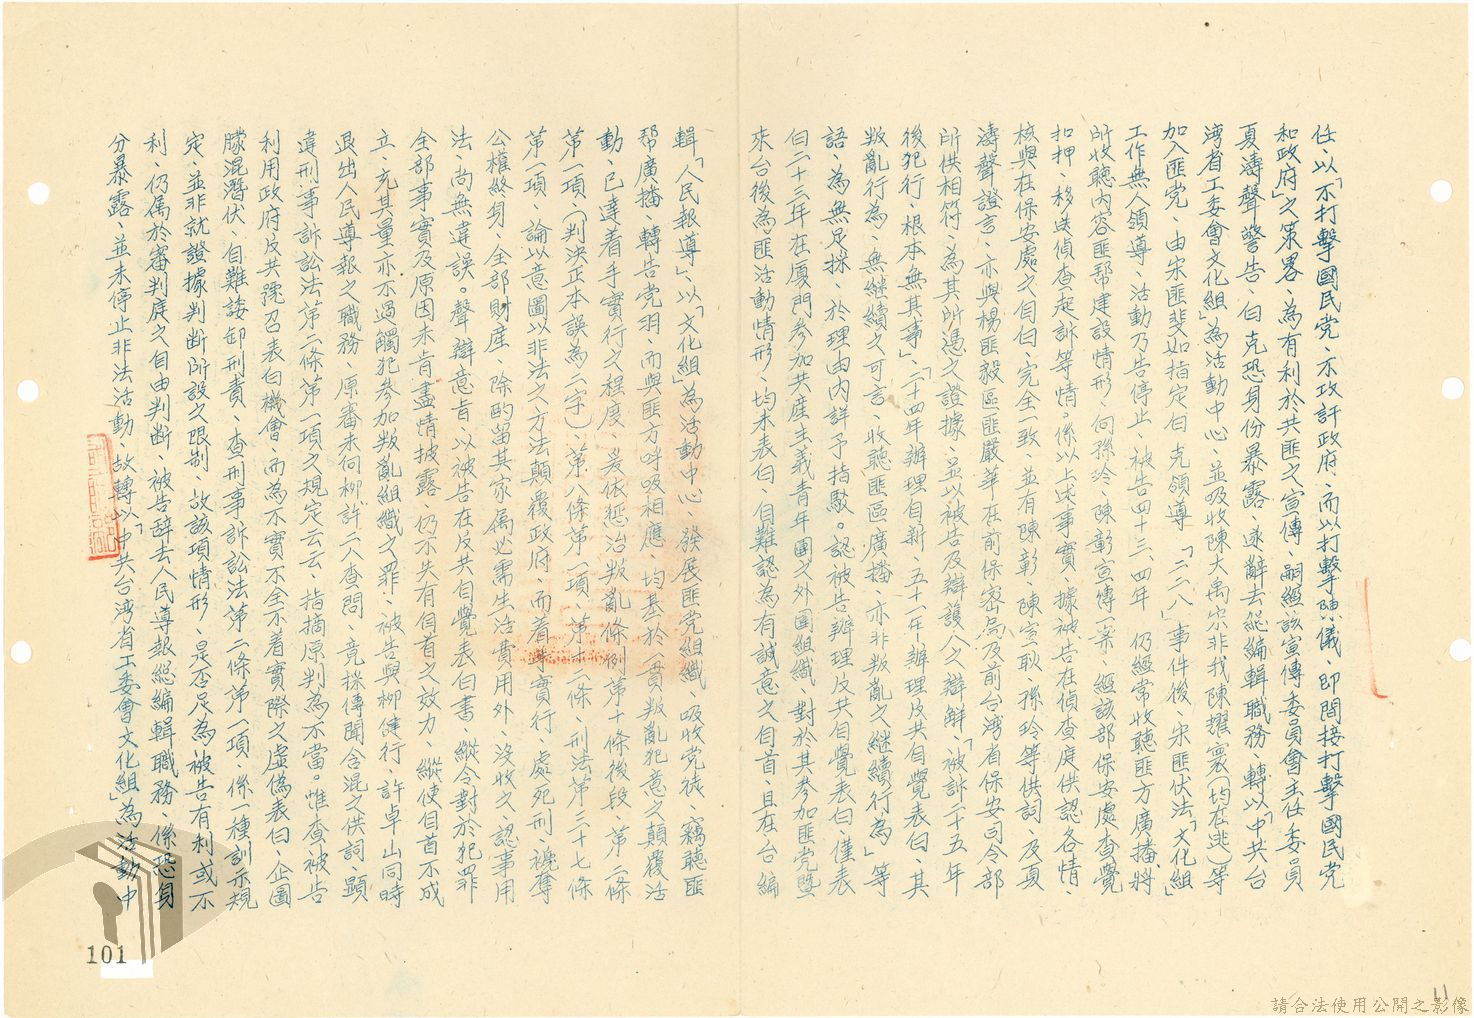 任、以「不打擊國民党、亦攻訐政府、而以打擊陳儀、即間接打擊國民党
和政府」之策略、為有利於共匪之宣傳、嗣經該宣傳委員會主任委員
夏濤聲警告、白克恐身份暴露、遂辭去總編輯職務、轉以「中共台
湾省工委會文化組」為活動中心、並吸收陳大禹宋非我陳耀寰（均在逃）等
加入匪党、由宋匪斐如指定白克領導、「二二八」事件後、宋匪伏法「文化組」
工作無人領導、活動乃告停止、被告四十三、四年、仍經常收聽匪方廣播、將
所收聽內容匪幫建設情形、向孫玲、陳彰宣傳一案、經該部保安處查覺
扣押、移送偵查起訴等情。係以上述事實、據被告在偵查庭供認各情、
核與在保安處之自白、完全一致、並有陳彰、陳宣耿、孫玲等供詞、及夏
濤聲證言、亦與楊匪毅區匪嚴華在前保密局及前台湾省保安司令部
所供相符、為其所憑之證據、並以被告及辯護人之辯解、「被訴二十五年
後犯行、根本無其事」、「二十四年辦理自新、五十一年辦理反共自覺表白、其
叛亂行為、無継續之可言、收聽匪區廣播、亦非叛亂之継續行為」等
語、為無足採、於理由內詳予指駁。認被告辦理反共自覺表白、僅表
白二十三年在厦門參加共產主義青年團之外圍組織、對於其參加匪党暨
來台後為匪活動情形、均未表白、自難認為有誠意之自首、且在台編
輯「人民報導」、以「文化組」為活動中心、發展匪党組織、吸收党徒、竊聽匪
幫廣播、轉告党羽、而與匪方呼吸相應、均基於一貫叛亂犯意之顛覆活
動、已達着手實行之程度、爰依懲治叛亂條例第十條後段、第二條
第一項、（判決正本誤為二字）、第八條第一項、第十二條、刑法第三十七條
第一項、論以意圖以非法之方法顛覆政府、而着手實行、處死刑、褫奪
公權終身、全部財產、除酌留其家属必需生活費用外、沒收之、認事用
法、尚無違誤。聲辯意旨、以被告在反共自覺表白書、縱令對於犯罪
全部事實及原因未肯盡情披露、仍不失有自首之效力、縱使自首不成
立、充其量亦不過觸犯參加叛亂組織之罪、被告與柳健行、許卓山同時
退出人民導報之職務、原審未向柳許二人查問、竟採傳聞含混之供詞、顯
違刑事訴訟法第二條第一項之規定云云、指摘原判為不當。惟查被告
利用政府反共號召表白機會、而為不實不全不着實際之虛偽表白、企圖
矇混潛伏、自難諉卸刑責、查刑事訴訟法第二條第一項、係一種訓示規
定、並非就證據判断所設之限制、故該項情形、是否足為被告有利或不
利、仍属於審判庭之自由判断、被告辞去人民導報總編輯職務、係恐身
分暴露、並未停止非法活動、故轉以「中共台湾省工委會文化組」為活動中
101
11
請合法使用公開之影像